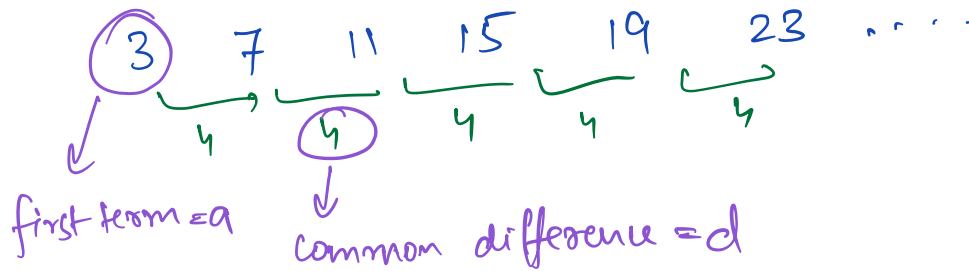 3 7 11 15 19 23 ....
4 4 4 4 4
first term = a
common difference = d